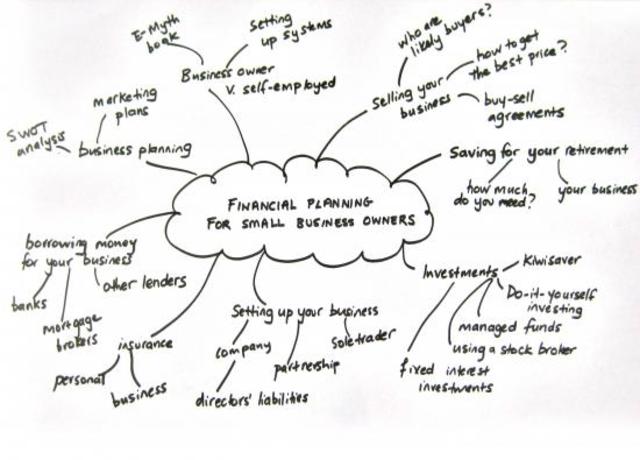 E-Myth
book
Setting
up systems
Business owner
v. self-employed
who are
likely buyers?
how to get
the best price?
Selling your
business
buy-sell
agreements
marketing
plans
SWOT
analysis
business planning
Saving for your retirement
how much
do you need?
your business
FINANCIAL PLANNING
FOR SMALL BUSINESS OWNERS
borrowing money
for your business
other lenders
banks
mortgage
brokers
insurance
personal
business
Setting up your business
company
partnership
Sole trader
directors' liabilities
Investments
Kiwisaver
Do-it-yourself
investing
managed funds
using a stock broker
fixed interest
investments